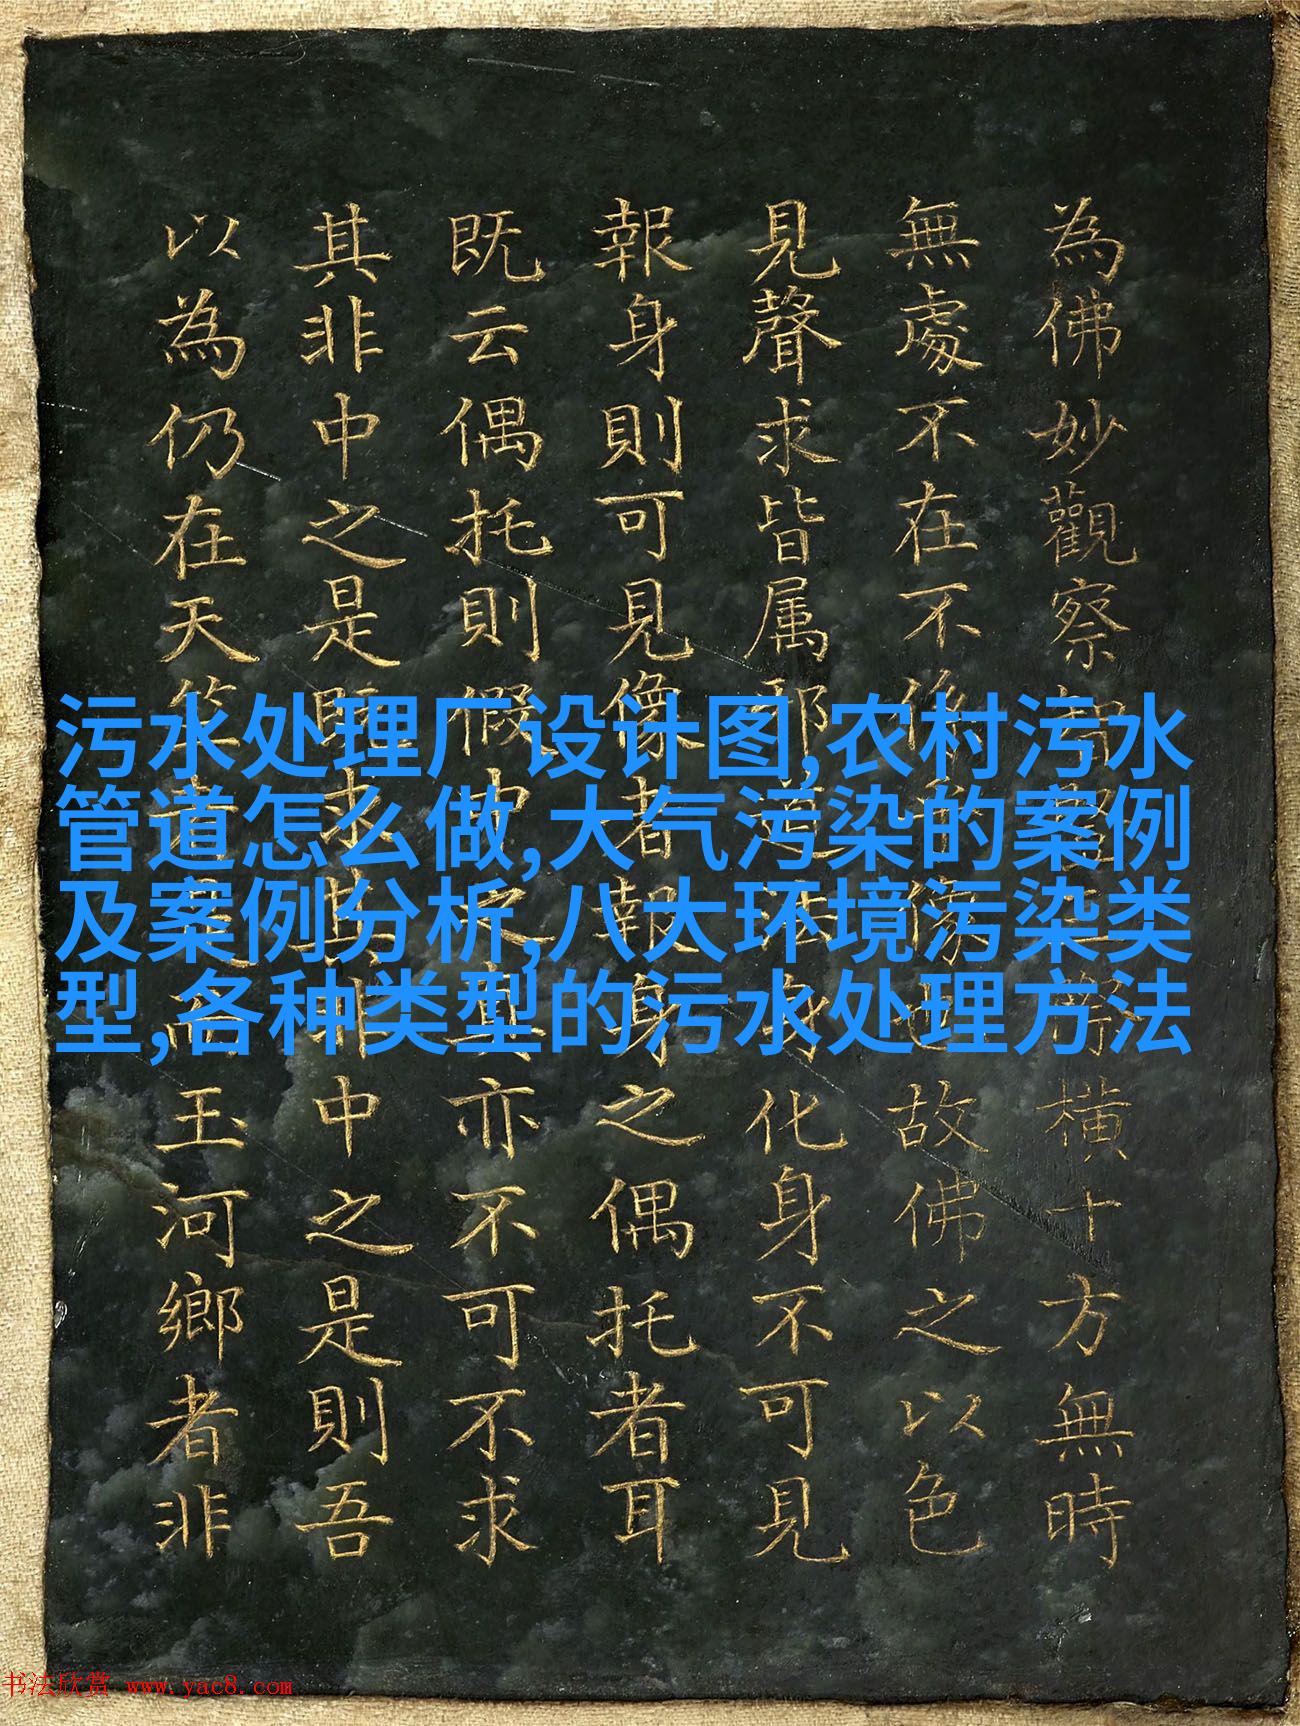 為佛妙觀察橫十方無時
無處不在不故佛之以色
見聲求皆属邪化身不可見
報身則可見像者報身之偶托者耳
既云偶托則假中之真亦不可不求
其非中之是既求其非中之是則吾
以為仍在天竺玉河鄉者非
污水处理厂设计图,农村污水
管道怎么做,大气污染的案例
及案例分析,八大环境污染类
型,各种类型的污水处理方法
书法欣赏 www.yac8.com